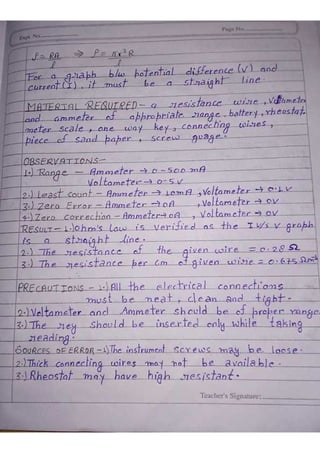 Expt. No.
Page No.
ρ = RA/l ⇒ ρ = πr²R/l
For a graph b/w potential difference (V) and
current (I), it must be a straight line.
MATERIAL REQUIRED - a resistance wire, Voltmeter
and ammeter of appropriate range, battery, rheostat
meter scale, one way key, connecting wires,
piece of sand paper, screw guage.
OBSERVATIONS-
1.) Range - Ammeter → 0-500 mA
Voltameter → 0-5V
2.) Least count - Ammeter → 10mA, Voltameter → 0.1V
3.) Zero Error - Ammeter → 0A, Voltameter → 0V
4.) Zero correction - Ammeter → 0A, Voltameter → 0V
RESULT - 1.) Ohm's Law is verified as the I V/s V graph
is a straight line.
2.) The resistance of the given wire = 0.28 Ω
3.) The resistance per cm of given wire = 0.675
PRECAUTIONS - 1.) All the electrical connections
must be neat, clean and tight.
2.) Voltameter and Ammeter should be of proper range.
3.) The key should be inserted only while taking
reading.
SOURCES OF ERROR - 1.) The instrument screws may be loose.
2.) Thick connecting wires may not be available.
3.) Rheostat may have high resistant.
Teacher's Signature: